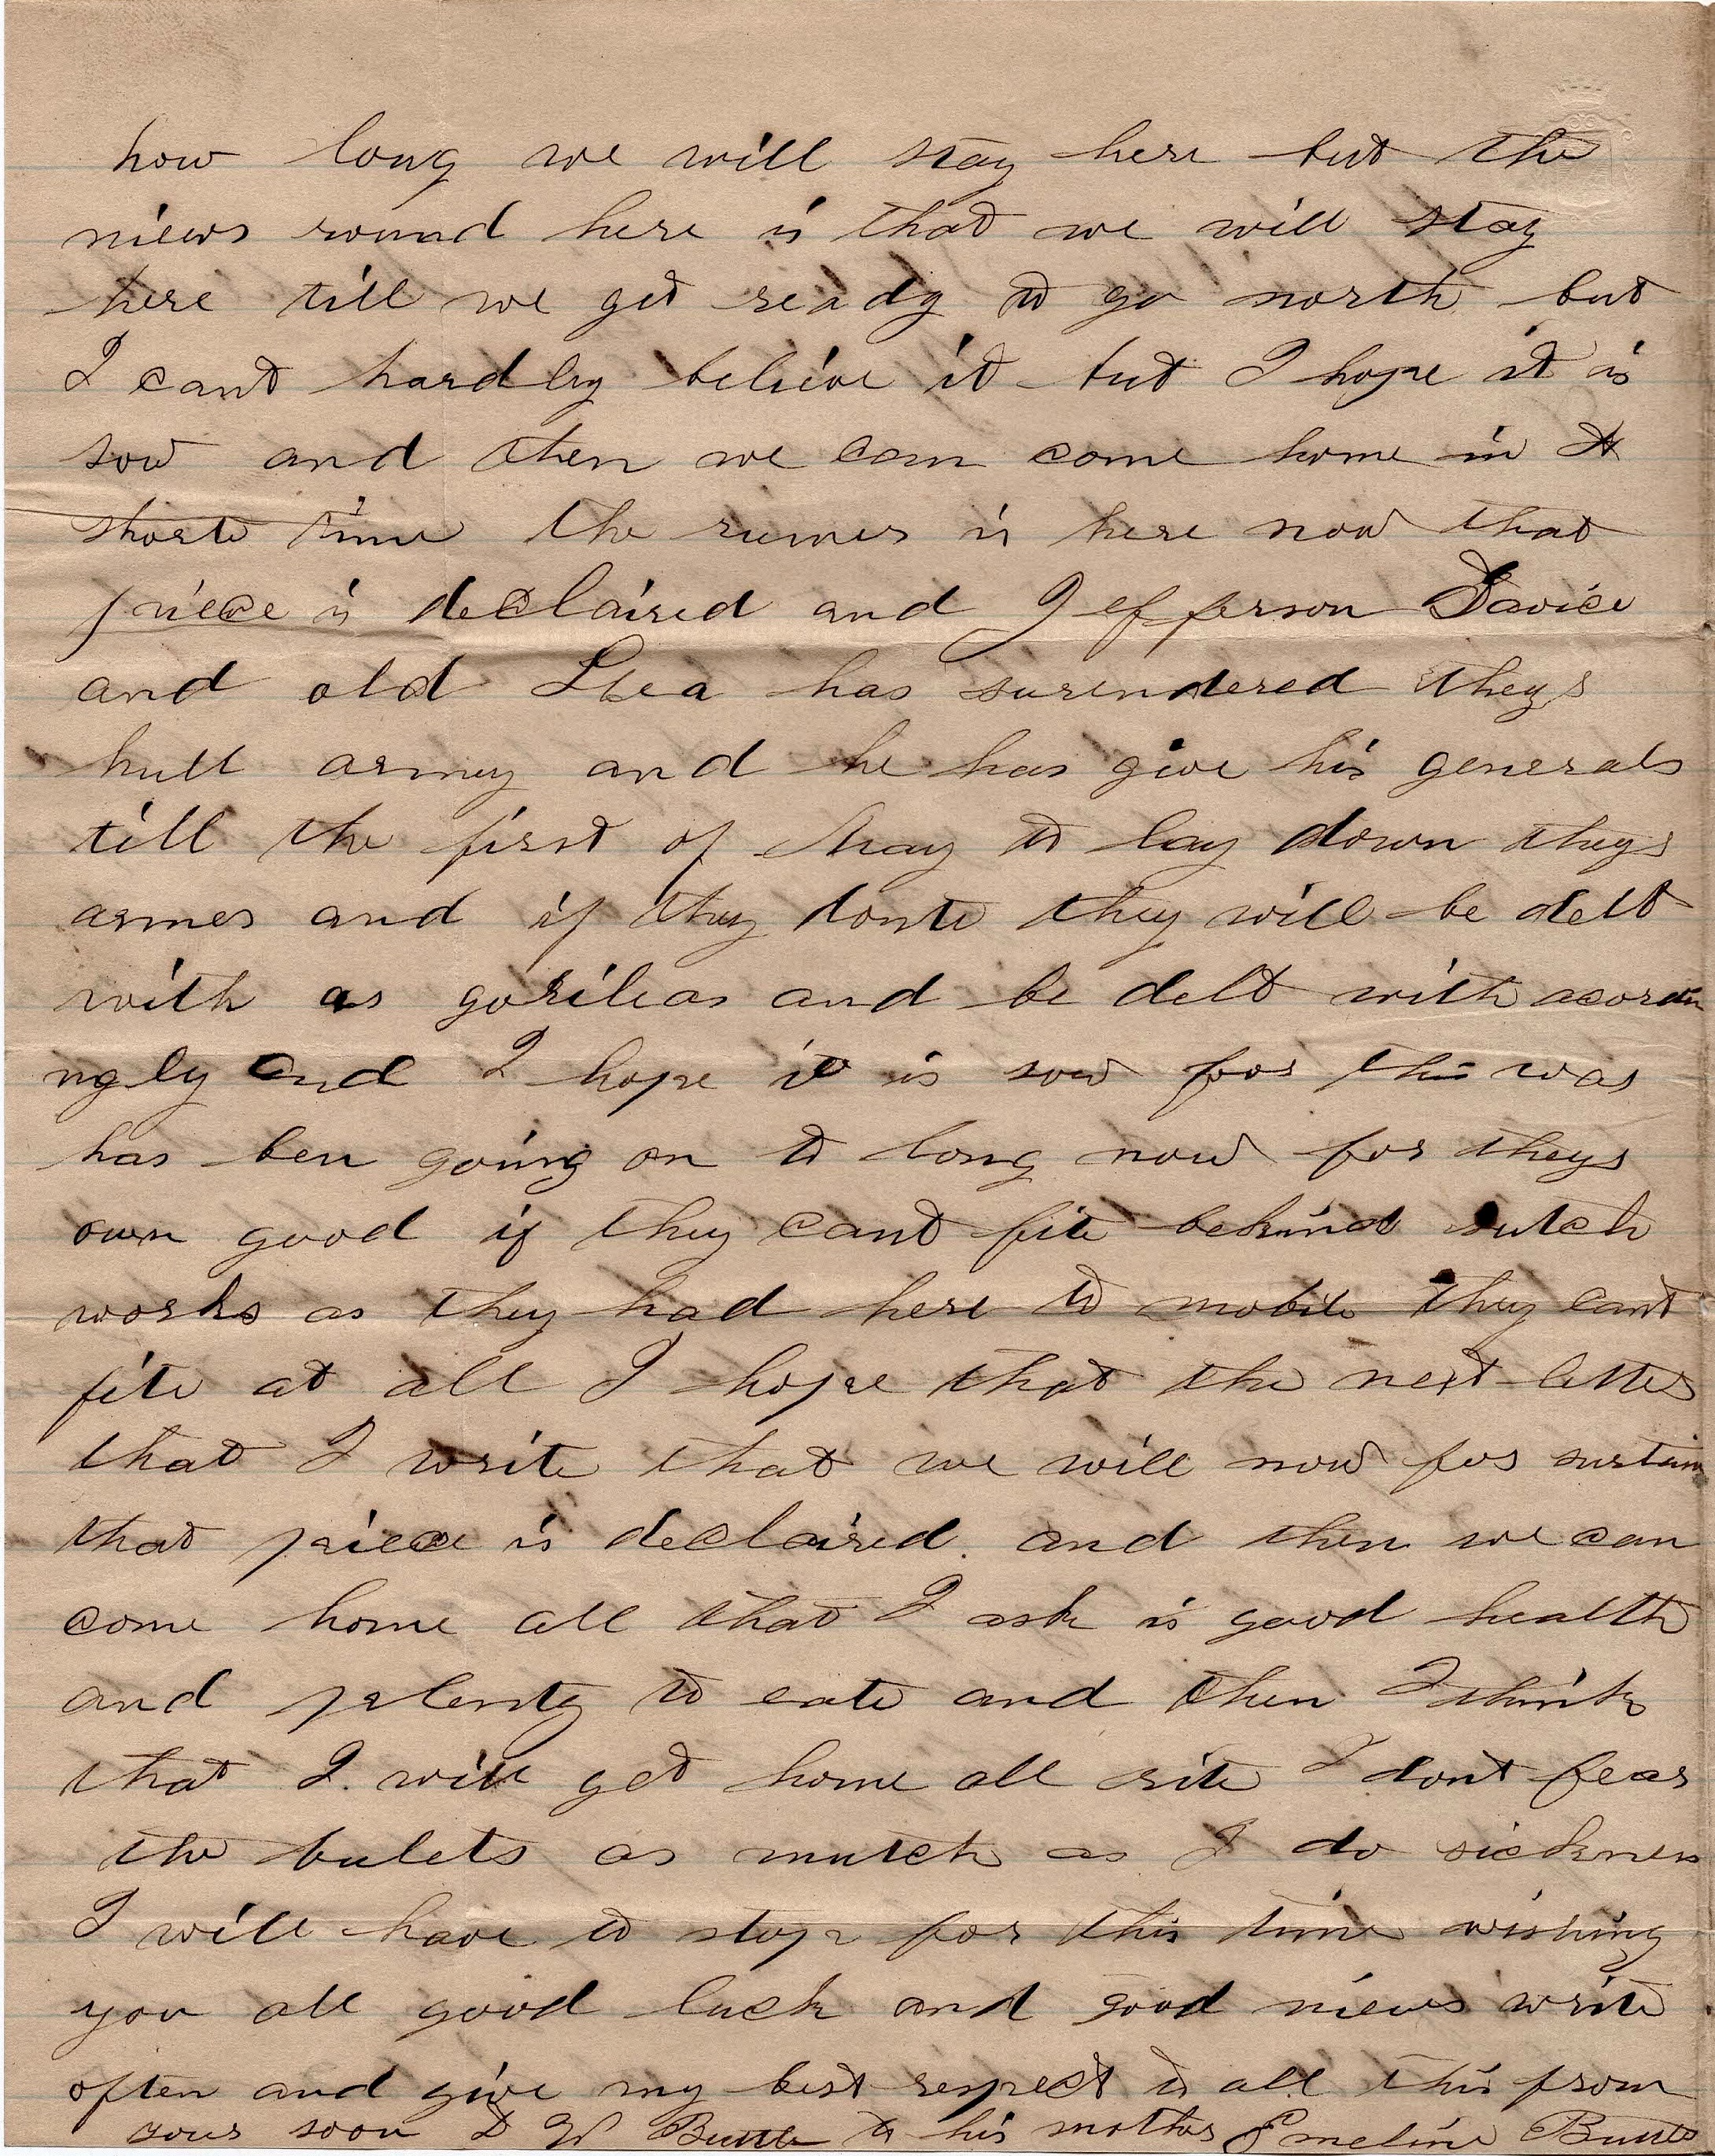 how long we will stay here but the
niews round here is that we will stay
here till we get ready to go north but
I cant hardley believe it but I hope it is
sow and then we can come home in A
shorte time the rumer is here now that
piece is declaired and Jefferson Davice
and old Lea has surendered theyr
hull army and he has give his generals
till the first of May to lay down theyr
armes and if they donte they will be delt
with as gorileas and be delt with acordi
ngly and I hope it is sow for this war
has ben going on to long now for theyr
own good if they cant fite behind sutch
works as they had here to mobile they cant
fite at all I hope that the next letter
that I write that we will now for sertain
that piece is declaired. and then we can
come home all that I ask is good health
and plenty to eate and then I think
that I will get home all rite I dont fear
the bulets as mutch as I do sickness
I will have to stop for this time wishing
you all good luck and good niews write
often and give my best respect to all this from
your soon D W Butts to his mother Emeline Butts